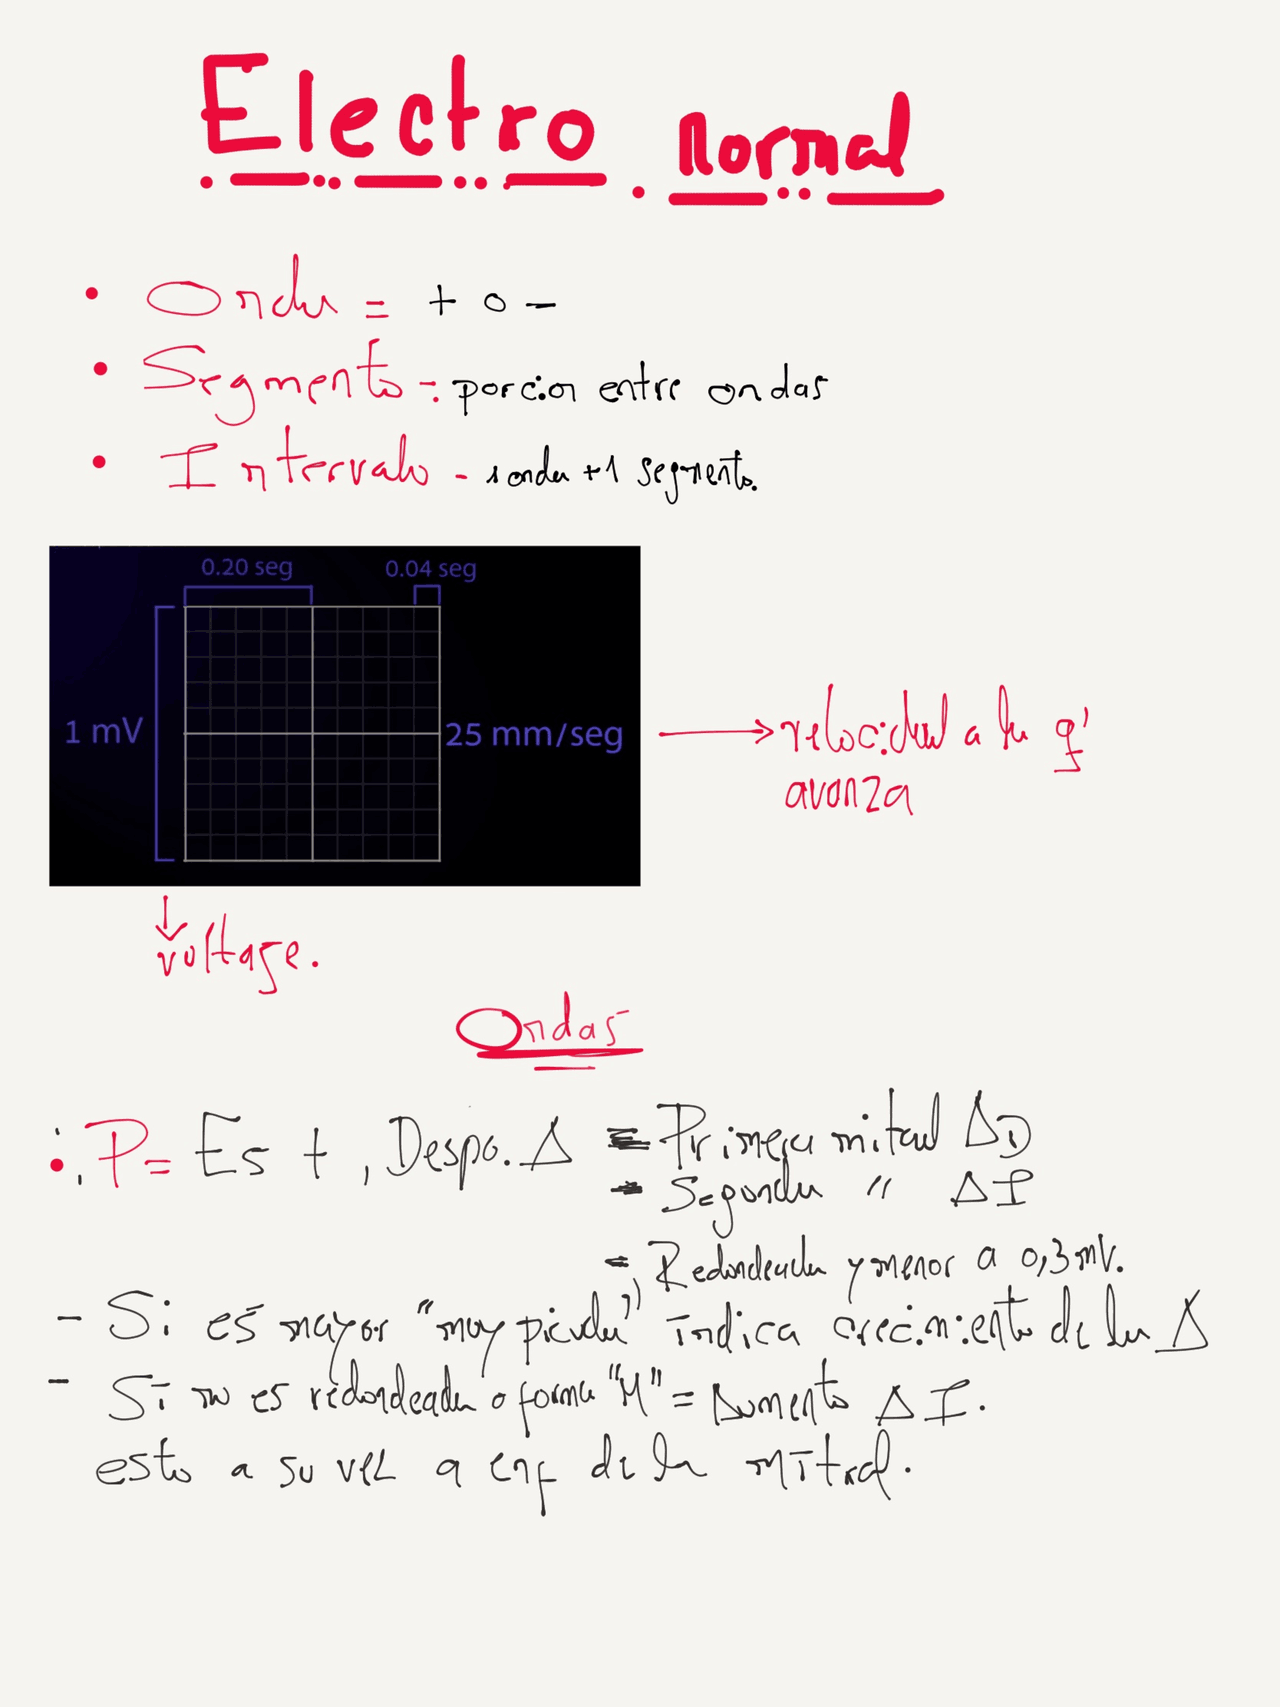 Electro normal
• Onda = + o -
• Segmento -: porcion entre ondas
• Intervalo - 1 onda + 1 segmento.
0.20 seg 0.04 seg
1 mV 25 mm/seg
→ velocidad a la q'
avanza
↓
voltage.
Ondas
P = Es +, Despo. Δ = Primera mitad ΔD
- Segunda " ΔI
- Redondeada y menor a 0,3 mV.
- Si es mayor "muy picuda" indica crecimiento de la Δ
- Si no es redondeada o forma "M" = Aumento ΔI.
esto a su vez a enf de la mitral.